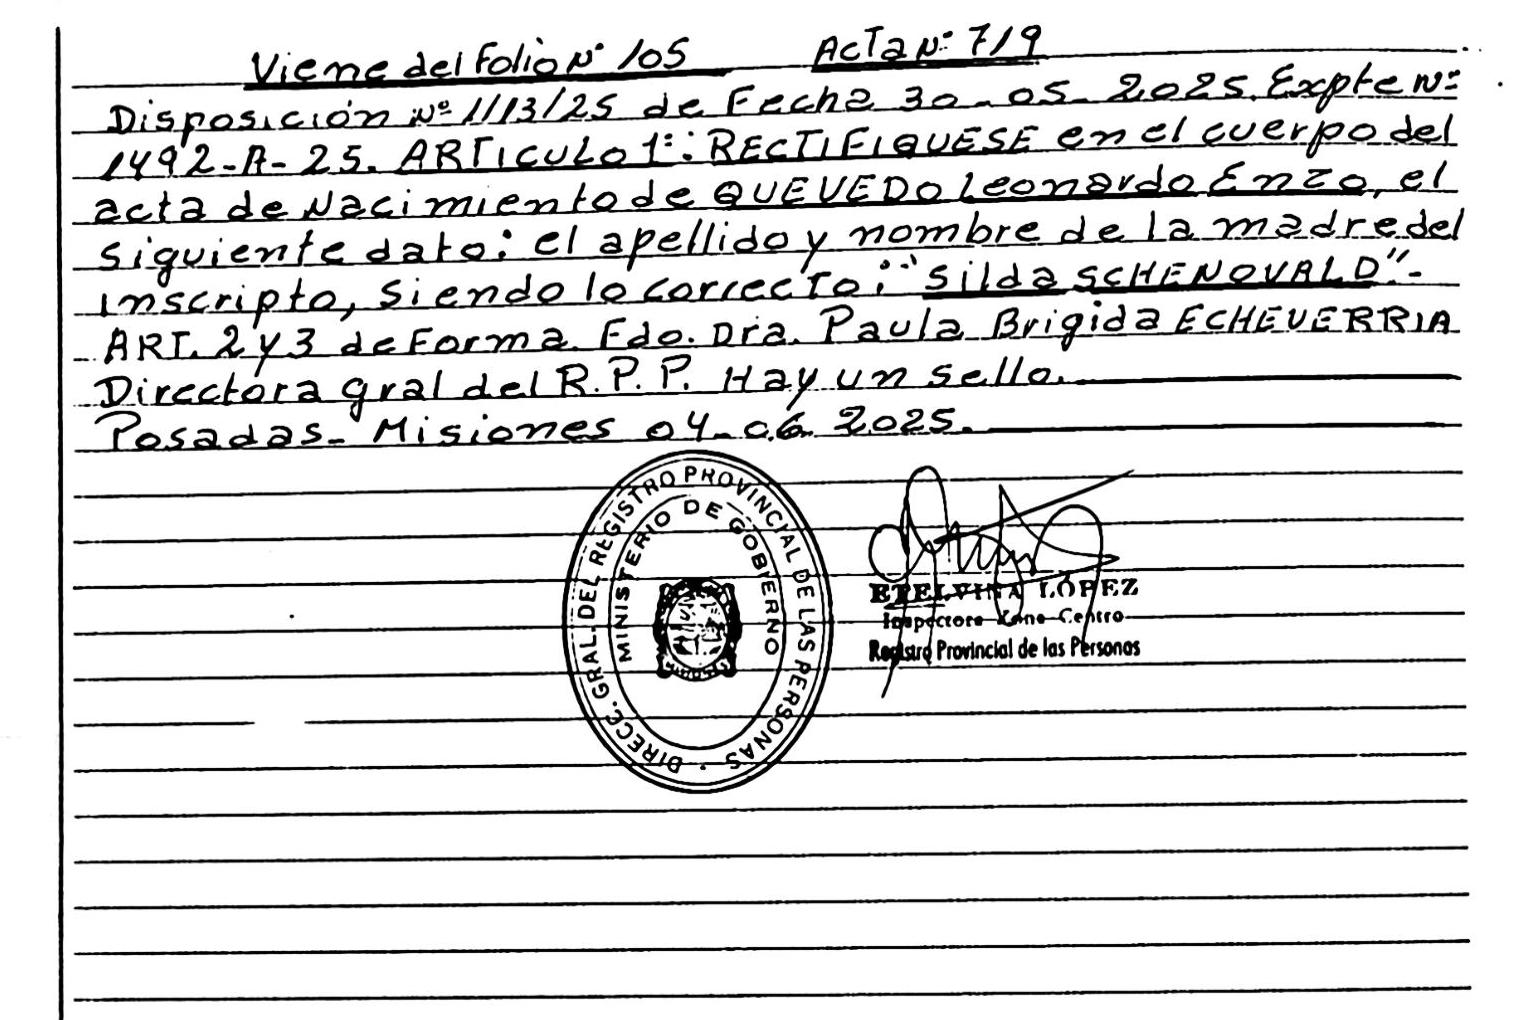 Viene del Folio Nº 105 Acta Nº 719
Disposición Nº 1113/25 de Fecha 30-05-2025. Expte Nº
1492-A-25. ARTICULO 1º: RECTIFIQUESE en el cuerpo del
acta de Nacimiento de QUEVEDO Leonardo Enzo, el
siguiente dato: el apellido y nombre de la madre del
inscripto, siendo lo correcto: "Silda SCHENOVALD".-
ART. 2 y 3 de Forma. Fdo. Dra. Paula Brigida ECHEVERRIA
Directora gral del R.P.P. Hay un sello.
Posadas - Misiones 04-06-2025.
DIRECC. GRAL. DEL REGISTRO PROVINCIAL DE LAS PERSONAS
MINISTERIO DE GOBIERNO
ETELVINA LÓPEZ
Inspectora Zona Centro
Registro Provincial de las Personas